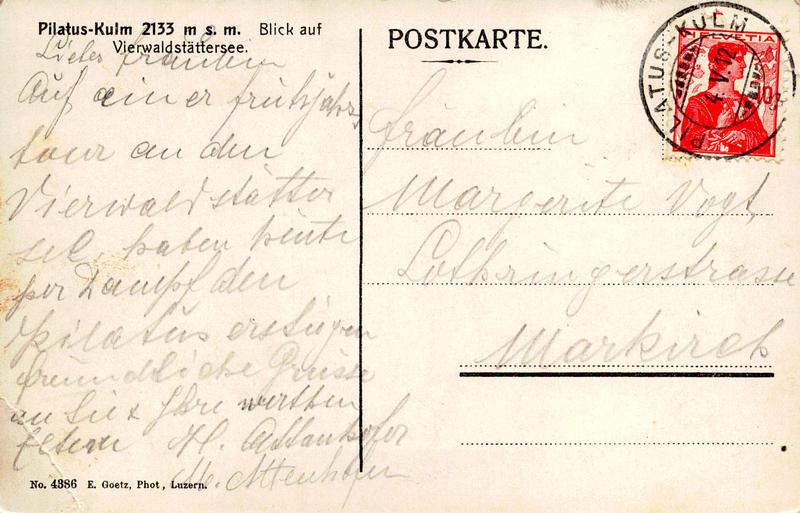 Pilatus-Kulm 2133 m s. m. Blick auf
Vierwaldstättersee.
Liebes Fräulein
Auf einer frühjahrs
tour an den
Vierwaldstätter
see, haben heute
per Dampf den
Pilatus erstiegen
freundliche Grüsse
an Sie & Ihre werthen
Eltern H. Attenhofer
M. Attenhofer
No. 4386 E. Goetz, Phot, Luzern.
POSTKARTE.
Fräulein
Margerite Vogt,
Lothringerstrasse
Markirch
PILATUS-KULM
4.V.12
HELVETIA
10